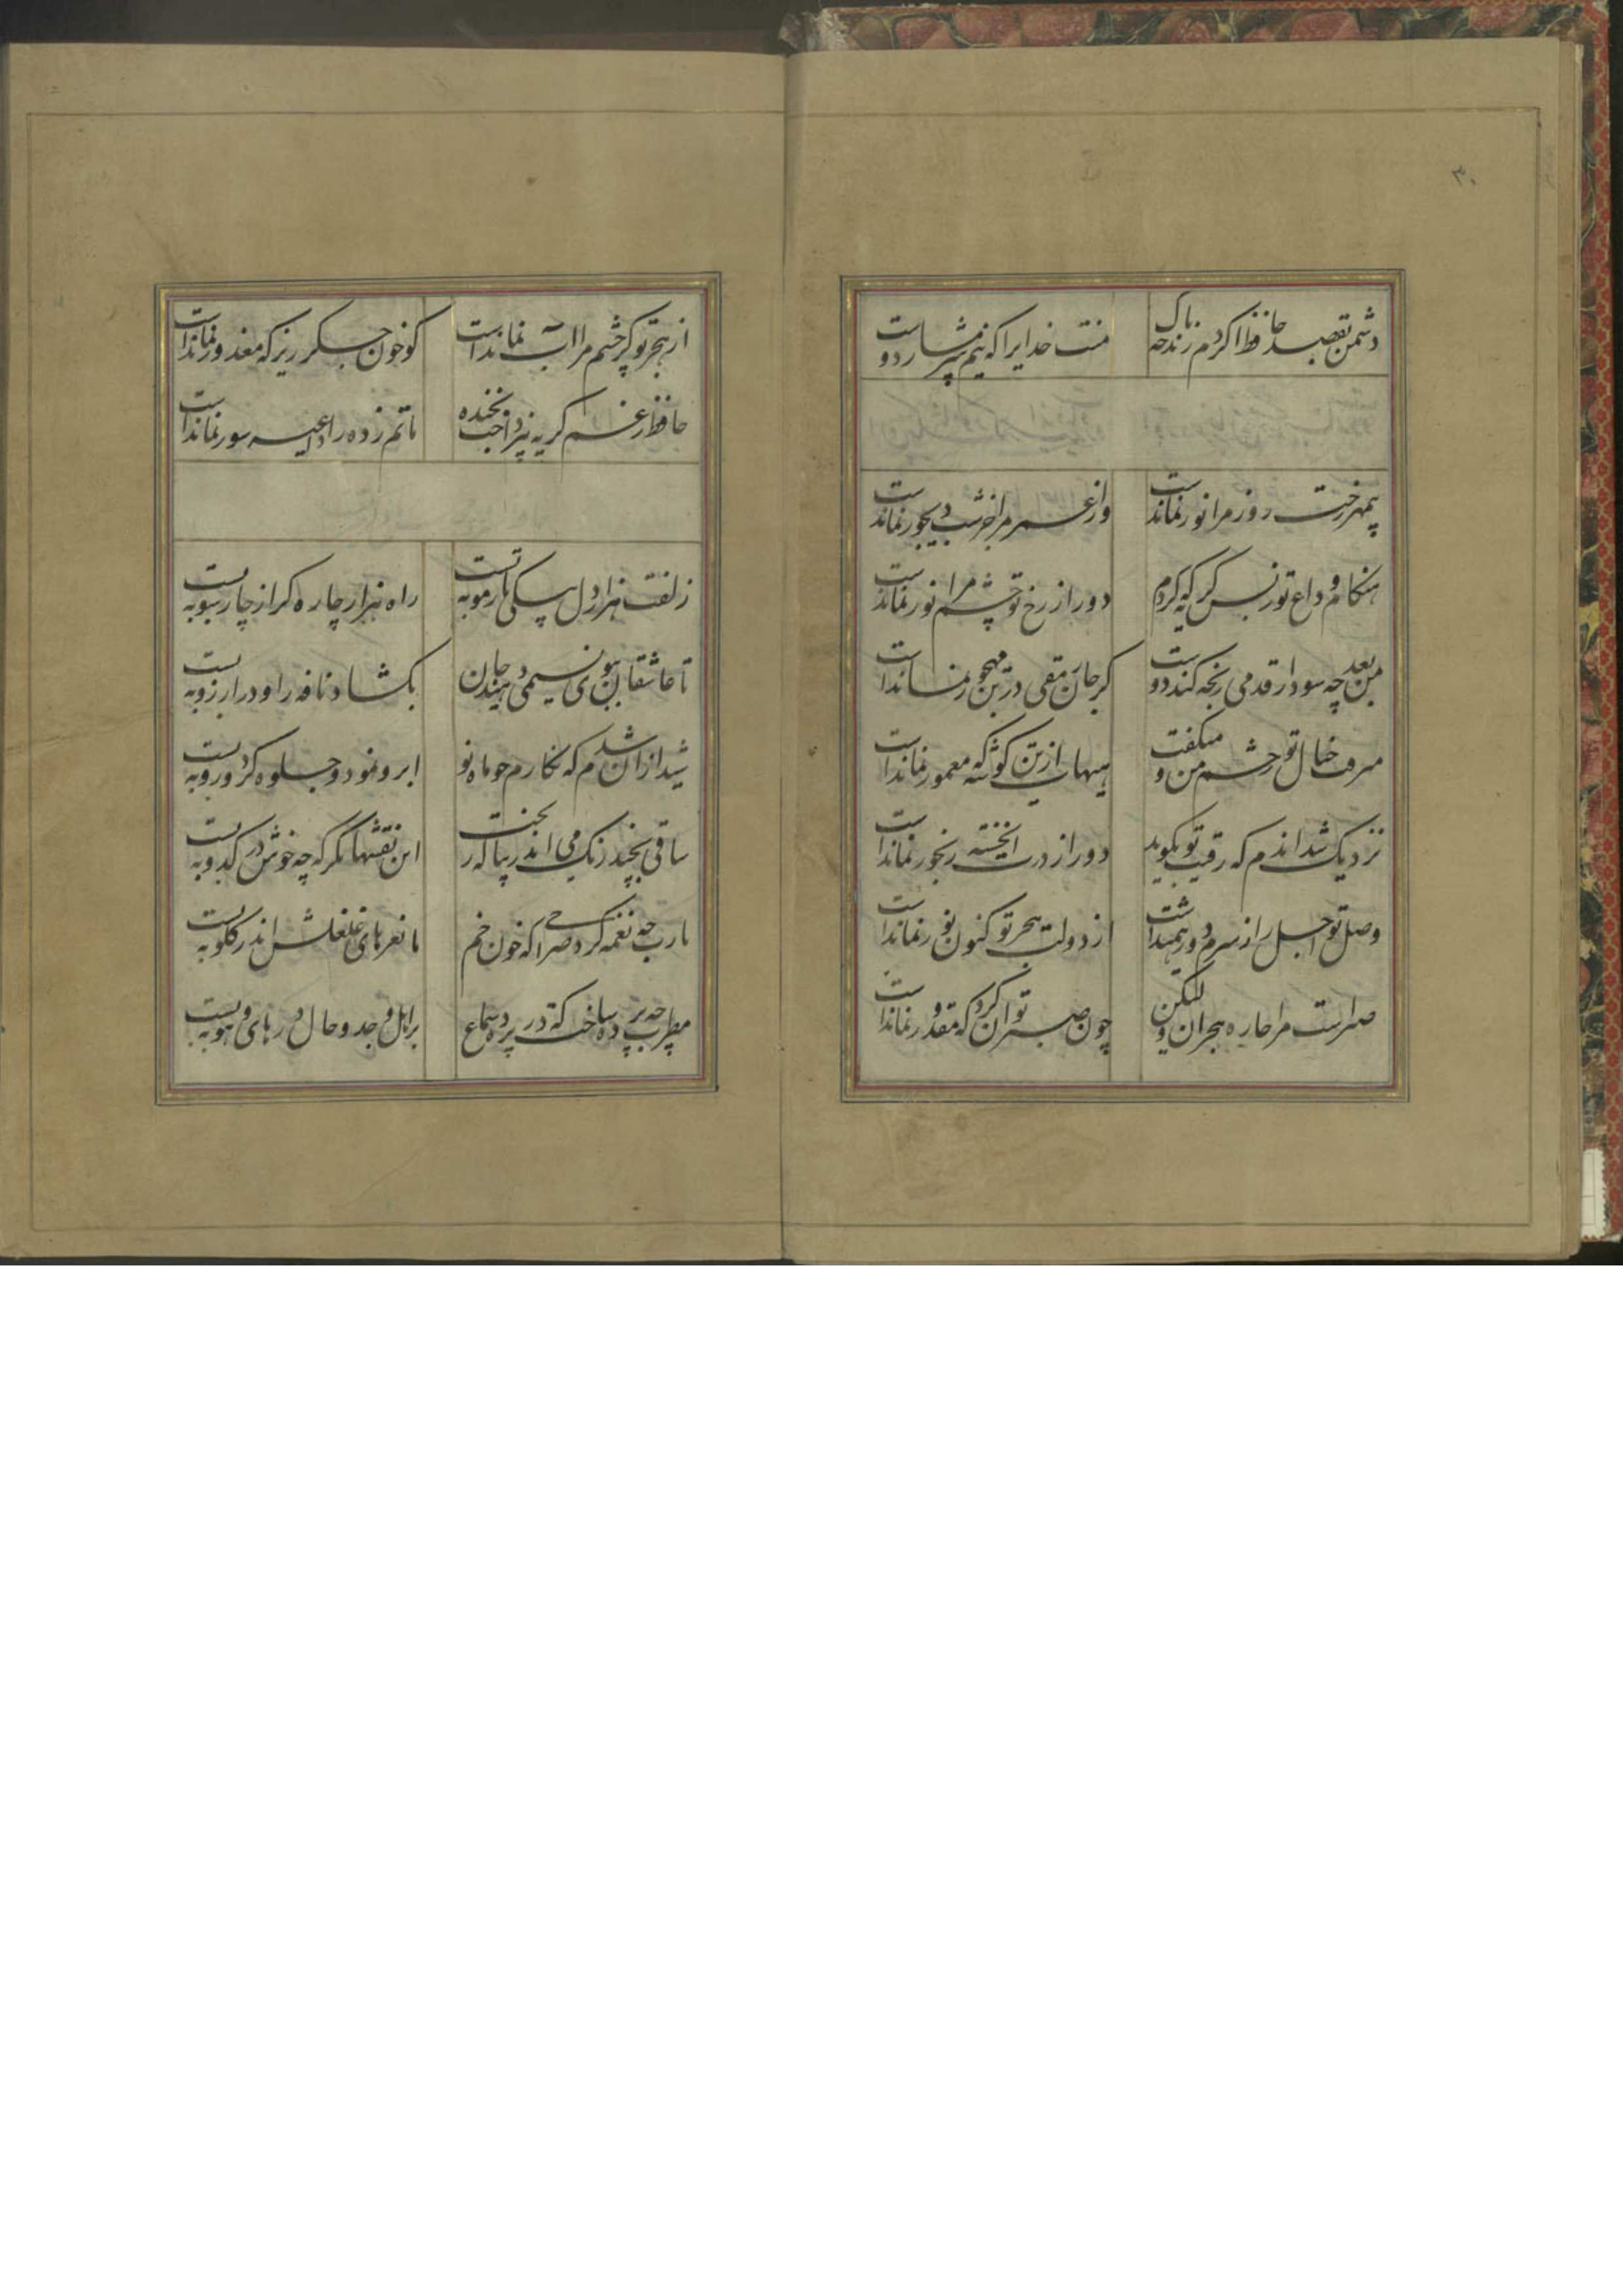 ۳۰
دشمن بقصد حافظ اگر دم زند چه باک
منت خدایرا که نیم شرمسار دوست
بیمهر رخت روز مرا نور نماندست
وز عمر مرا جز شب دیجور نماندست
هنکام وداع تو ز بس کریه که کردم
دور از رخ تو چشم مرا نور نماندست
من بعد چه سود ار قدمی رنجه کند دوست
کز جان رمقی در تن مهجور نماندست
میرفت خیال تو ز چشم من و میکفت
هیهات ازین کوشه که معمور نماندست
نزدیک شد اندم که رقیب تو بکوید
دور از درت این خسته رنجور نماندست
وصل تو اجل را ز سرم دور همیداشت
از دولت هجر تو کنون دور نماندست
صبرست مرا چاره هجران تو لیکن
چون صبر توان کرد که مقدور نماندست
از هجر تو کر چشم مرا آب نماندست
کو خون جکر ریز که معذور نماندست
حافظ ز غم از کریه نپرداخت بخنده
ماتم زده را داعیه سور نماندست
زلفت هزار دل بیکی تار مو ببست
راه هزار چاره کر از چار سو ببست
تا عاشقان ببوی نسیمی دهند جان
بکشاد نافه را و در آرزو ببست
شیدا ازان شدم که نکارم چو ماه نو
ابرو نمود و جلوه کرد و رو ببست
ساقی بچند رنک می اندر پیاله ریخت
این نقشها نکر که چه خوش در کدو ببست
یارب چه نغمه کرد صراحی که خون خم
با نعرهای غلغلش اندر کلو ببست
مطرب چه پرده ساخت که در پرده سماع
بر اهل وجد و حال در های و هو ببست